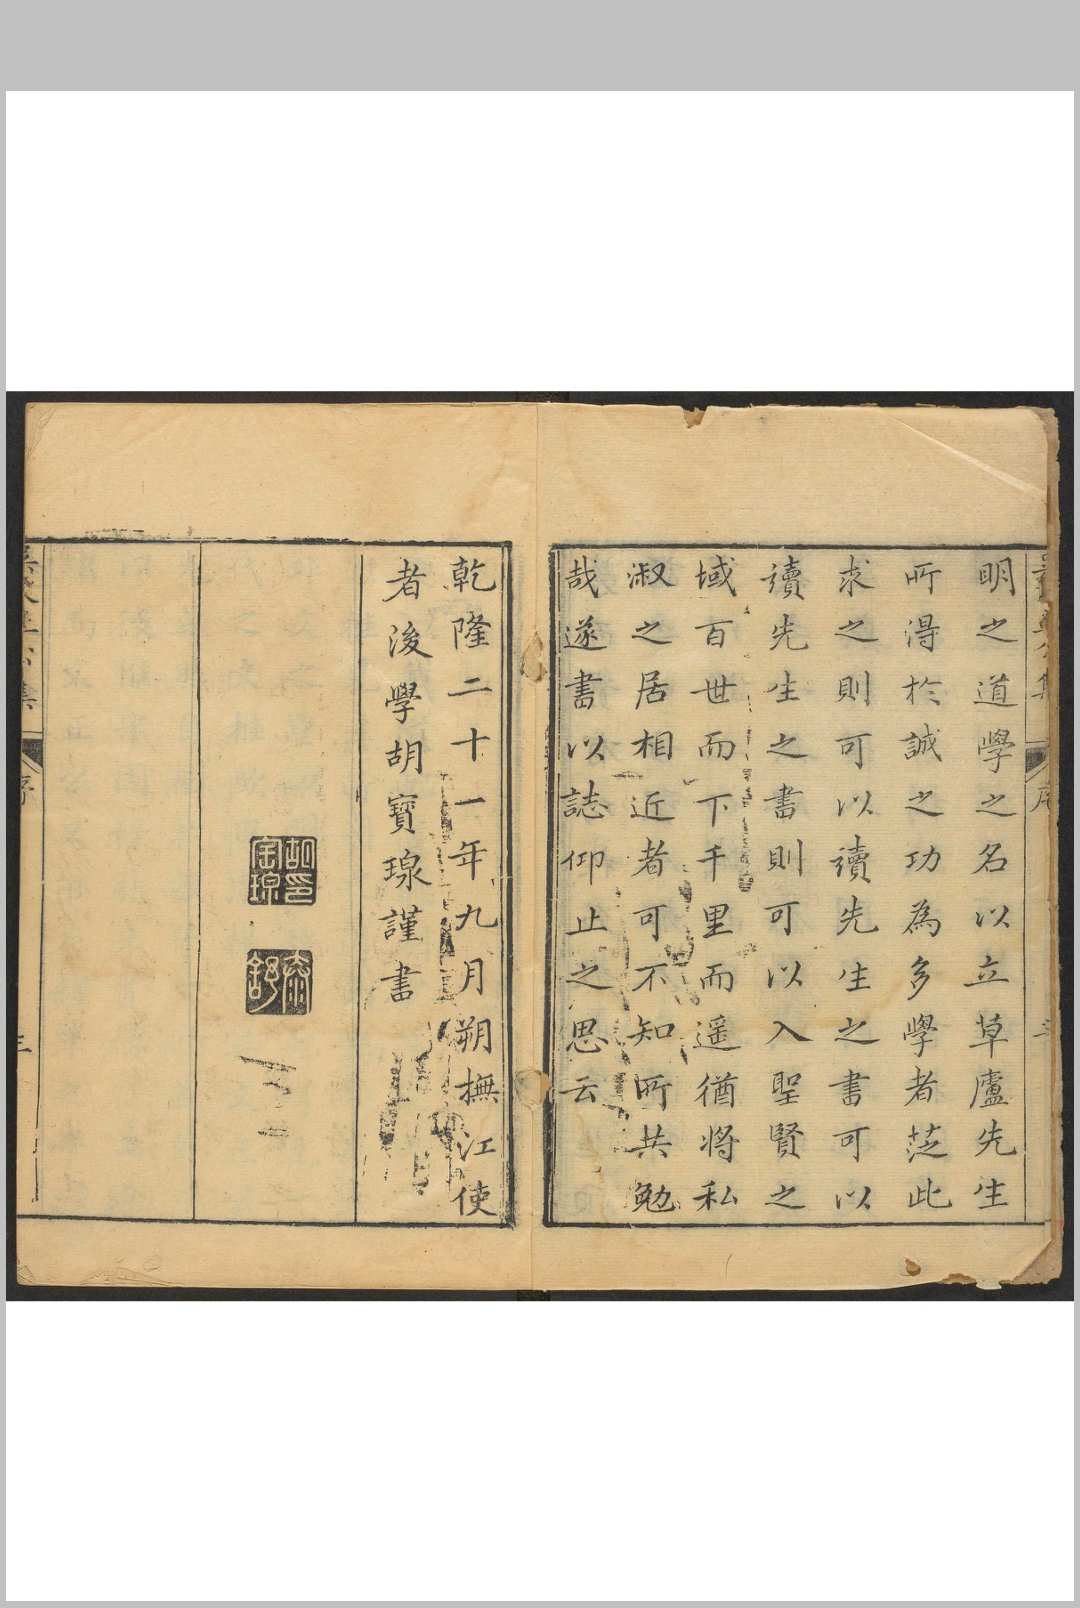 明之道學之名以立草廬先生
所得於誠之功為多學者茫此
求之則可以讀先生之書可以
讀先生之書則可以入聖賢之
域百世而下千里而遥猶將私
淑之居相近者可不知所共勉
哉遂書以誌仰止之思云
序
乾隆二十一年九月朔撫江使
者後學胡寶瑔謹書
胡印寶瑔
泰舒
序
三